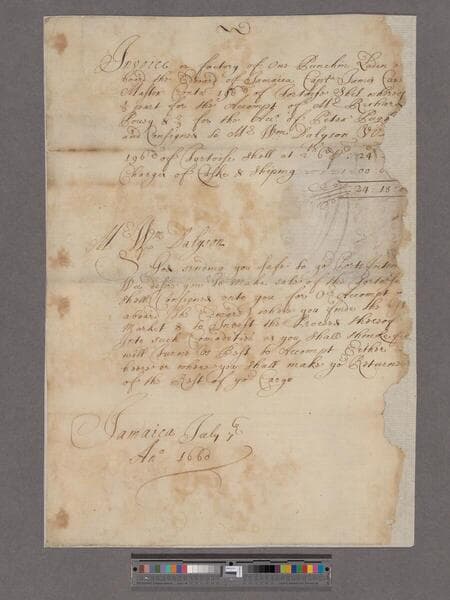 Invoice or factory of One Punchn Laden a
bord the Edward of Jamaica Capt James Car
Master Conta 196 of Tortoise Shel whereof
½ part for the Accompt of Mr Richard
Povey & ½ for the Acc of Peter Pugh
and Consigned to Mr Wm Dalyson
196 of Tortoise Shell at 24
Charges of Caske & Shiping 00
24 : 15
Mr Wm Dalyson
God sending you safe to yr Port
Wee desire you to make sale of the Tortoise
Shell Consigned unto you for Or Accompt
aboard the Edward where you finde the
Market & to Invest the Proceed thereof
Into such Comodities as you shall thinke
will turne to Best to Accompt Either
heere or where you shall make yor Returnes
of the Rest of yr Cargo
Jamaica July
Ano 1660